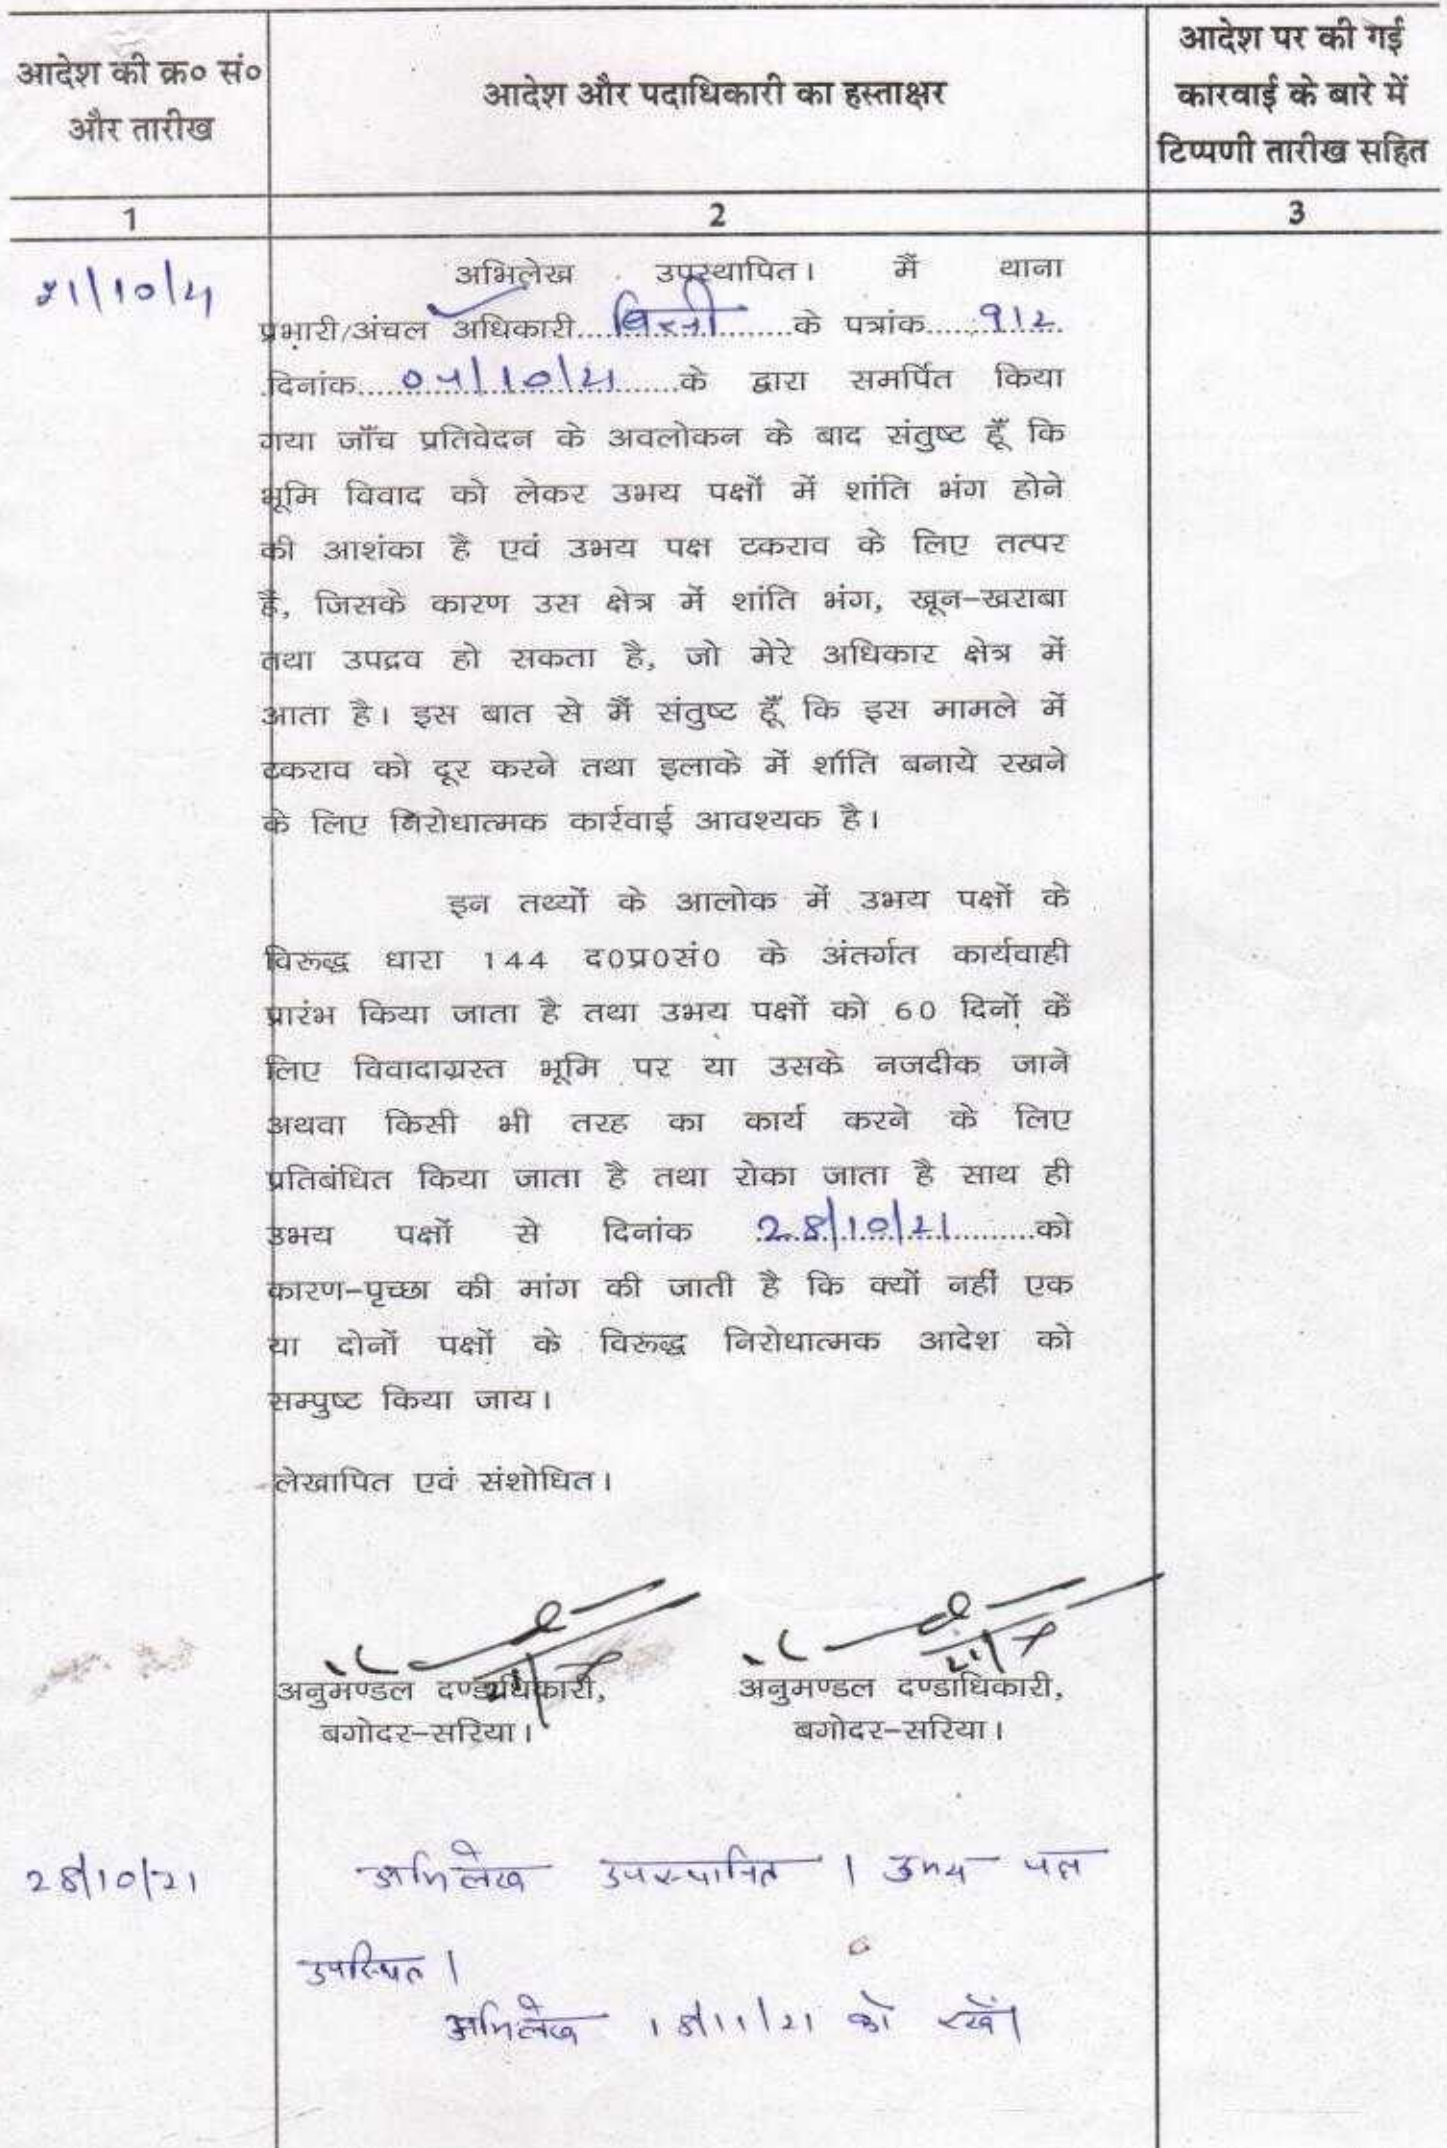 आदेश की क्र० सं०
और तारीख
आदेश और पदाधिकारी का हस्ताक्षर
आदेश पर की गई
कारवाई के बारे में
टिप्पणी तारीख सहित
1
2
3
अभिलेख उपस्थापित। मैं थाना
प्रभारी/अंचल अधिकारी.... बिरनी ....के पत्रांक....912
दिनांक.............के द्वारा समर्पित किया
गया जाँच प्रतिवेदन के अवलोकन के बाद संतुष्ट हूँ कि
भूमि विवाद को लेकर उभय पक्षों में शांति भंग होने
की आशंका है एवं उभय पक्ष टकराव के लिए तत्पर
है, जिसके कारण उस क्षेत्र में शांति भंग, खून-खराबा
तथा उपद्रव हो सकता है, जो मेरे अधिकार क्षेत्र में
आता है। इस बात से मैं संतुष्ट हूँ कि इस मामले में
टकराव को दूर करने तथा इलाके में शांति बनाये रखने
के लिए निरोधात्मक कार्रवाई आवश्यक है।
इन तथ्यों के आलोक में उभय पक्षों के
विरूद्ध धारा 144 द0प्र0सं0 के अंतर्गत कार्यवाही
प्रारंभ किया जाता है तथा उभय पक्षों को 60 दिनों के
लिए विवादाग्रस्त भूमि पर या उसके नजदीक जाने
अथवा किसी भी तरह का कार्य करने के लिए
प्रतिबंधित किया जाता है तथा रोका जाता है साथ ही
उभय पक्षों से दिनांक 28/10/21..........को
कारण-पृच्छा की मांग की जाती है कि क्यों नहीं एक
या दोनों पक्षों के विरूद्ध निरोधात्मक आदेश को
सम्पुष्ट किया जाय।
लेखापित एवं संशोधित।
अनुमण्डल दण्डाधिकारी, अनुमण्डल दण्डाधिकारी,
बगोदर-सरिया। बगोदर-सरिया।
28/10/21 अभिलेख उपस्थापित । उभय पक्ष
उपस्थित ।
अभिलेख 18/11/21 को रखें।